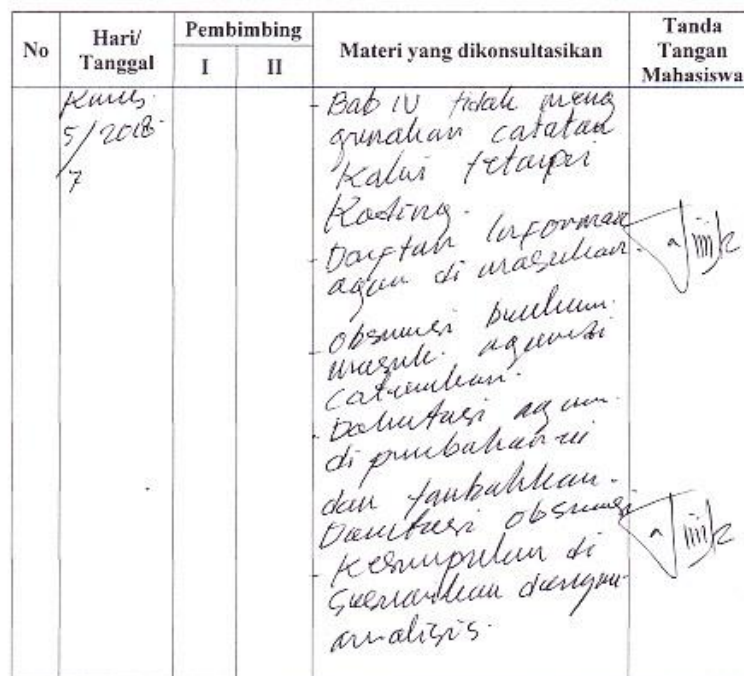 No
Hari/
Tanggal
Pembimbing
I
II
Materi yang dikonsultasikan
Tanda
Tangan
Mahasiswa
Kamis
5/2018
7
- Bab IV tidak meng
gunakan catatan
kaki tetapi
Koding.
- Daftar Informan
agar di masukan.
- Observasi
masuk
cantumkan.
- agar
di
dan tambahkan.
observasi
- Kesimpulan di
sesuaikan dengan
analisis.